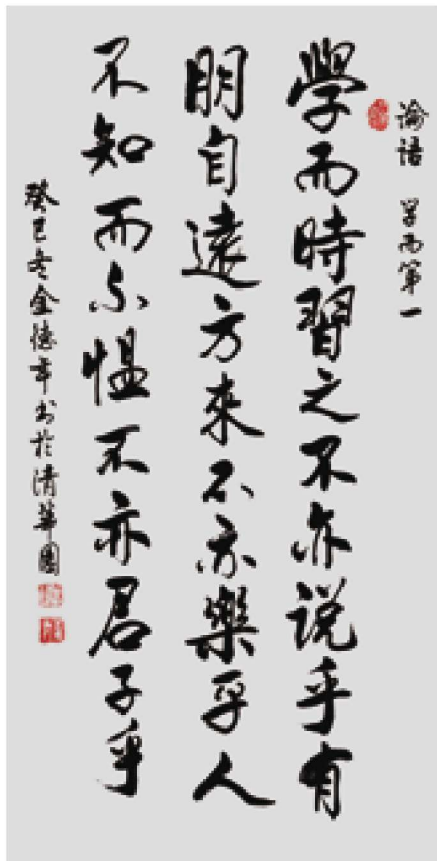 論語 学而第一
學而時習之不亦説乎有
朋自遠方來不亦樂乎人
不知而不愠不亦君子乎
癸巳冬金书於清華園